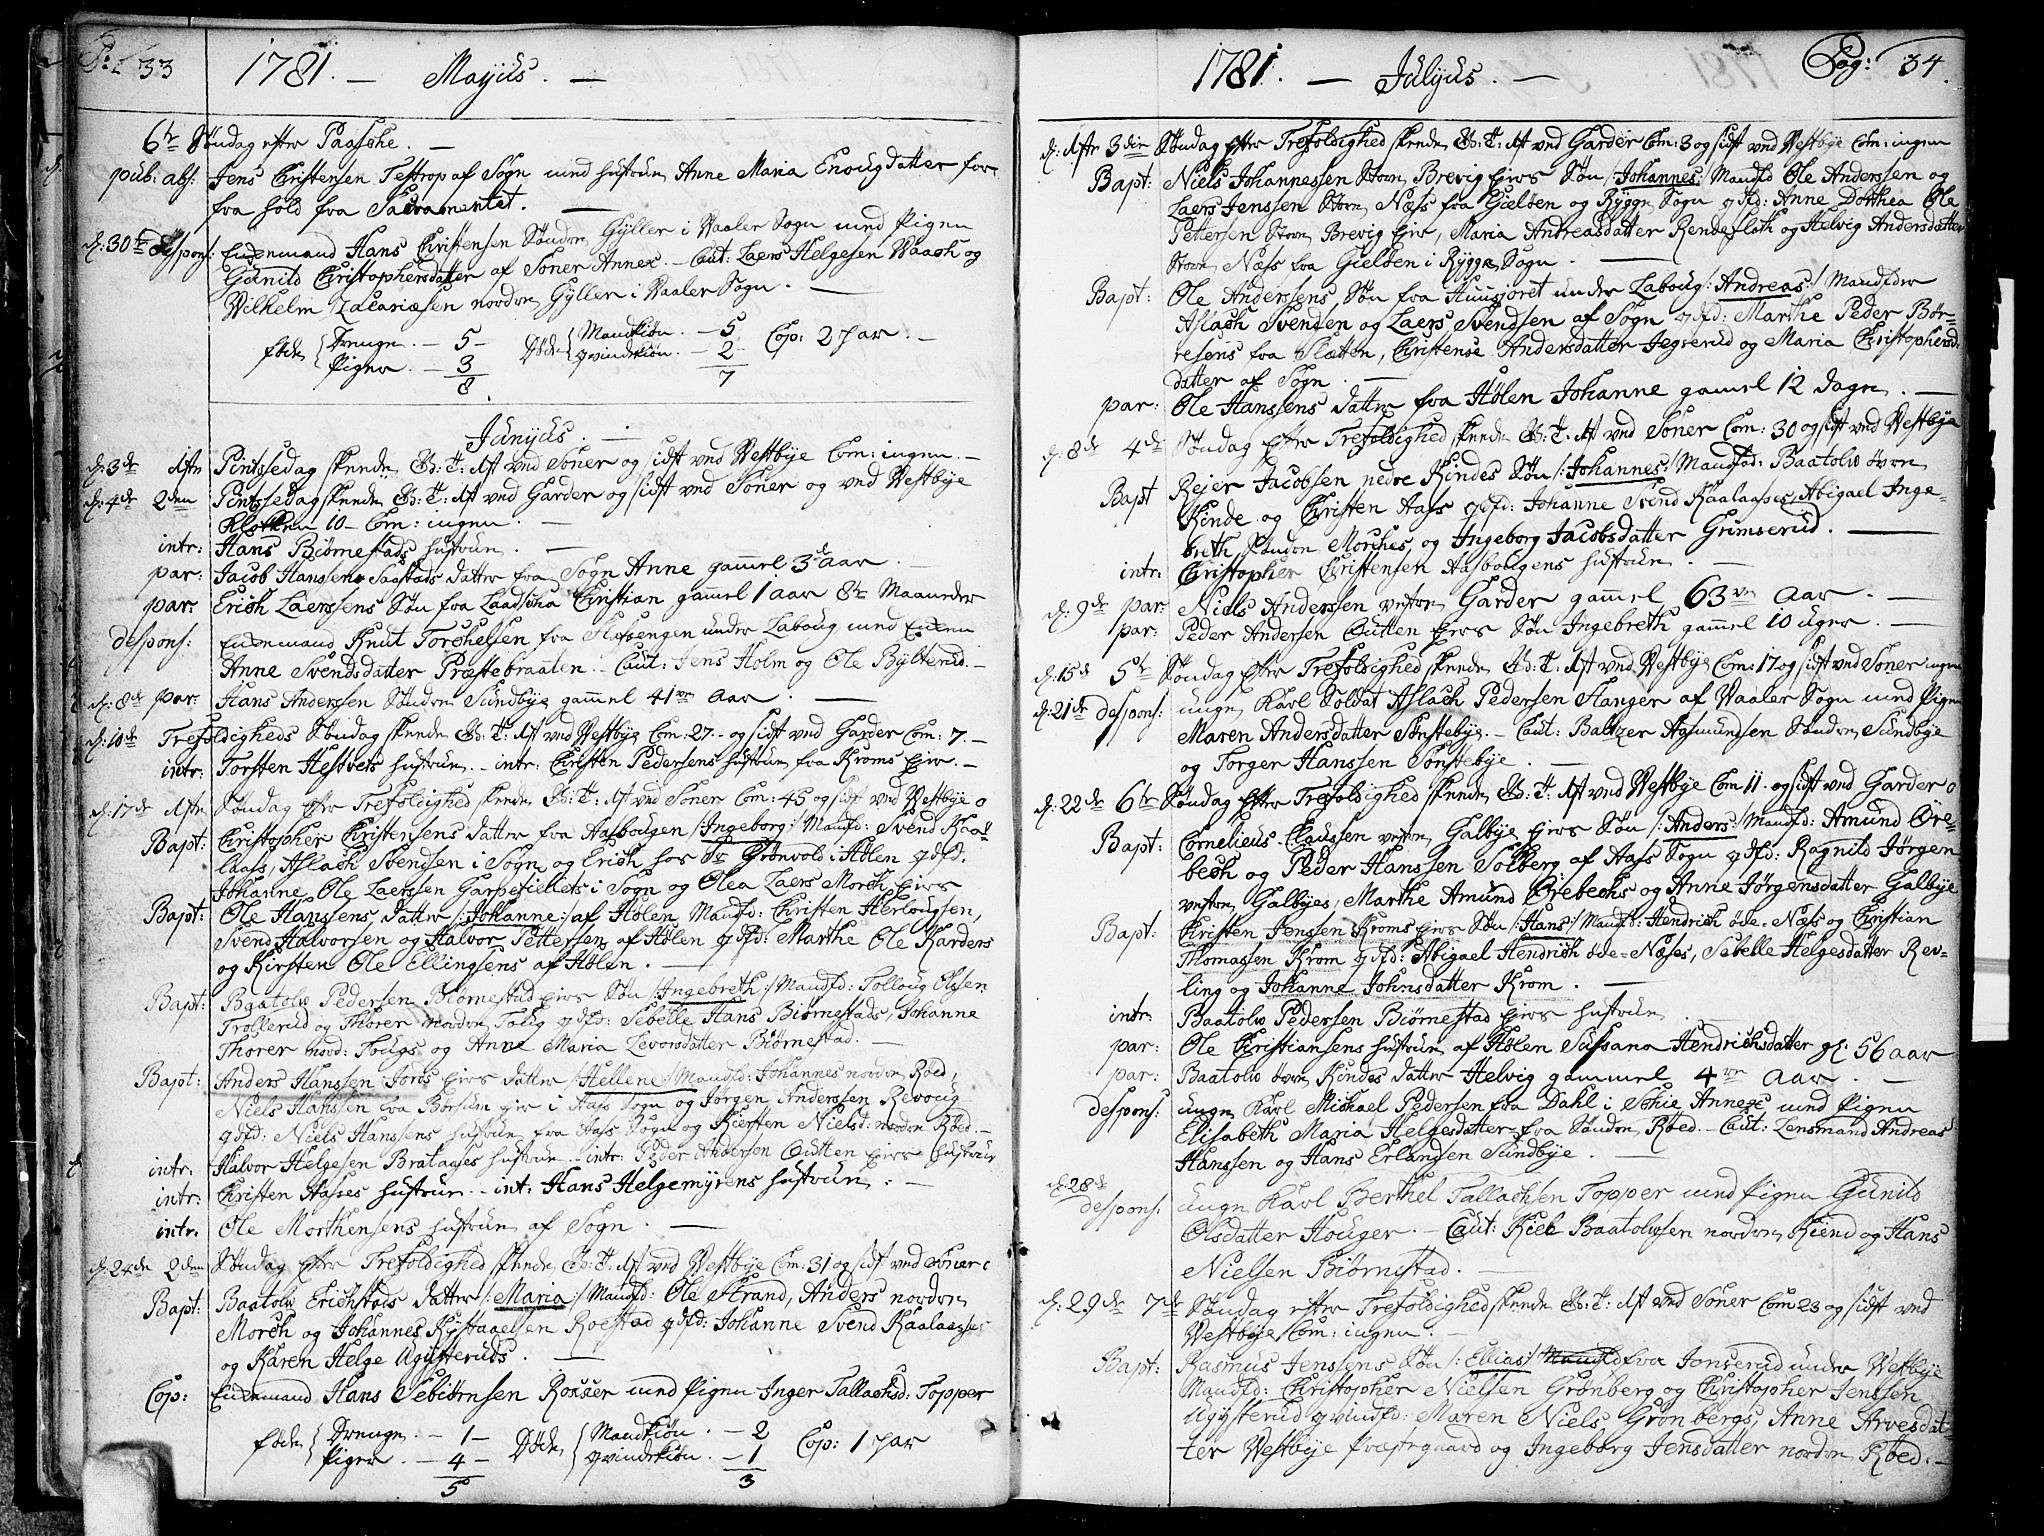 P: 33 1781. — Majus. —
6te Søndag efter Paaske. —
pub: abs: Jens Christensen Testrop af Sogn med hustrue Anne Maria Enougdatter for-
fra hold fra Sacramentet. —
d: 30te Despons: Enkemand Hans Christensen Søndre Gyller i Vaaler Sogn med Pigen
Gunild Christophersdatter af Soner Annex. — Caut: Laers Helgesen Vaach og
Vilhelm Zacariæsen nordre Gyller i Vaaler Sogn. —
føde { Drenge. — 5 — Døde { Mandkiøn. — 5 Cop: 2 par. —
Piger. — 3 qvindekiøn. — 2
8 7
Junius. —
d: 3de 1ste Pintsedag skeede G: T: 1st ved Soner og sidst ved Vestbye Com: ingen. —
d: 4de 2den Pintsedag skeede G: T: 1st ved Garder og sidst ved Soner og ved Vestbye
Klokken 10 — Com: ingen. —
intr: Hans Biørnestads hustrue. —
par: Jacob Hanssens Saastads datter fra Sogn Anne gamel 3de aar. —
par: Erich Laerssens Søn fra Laadscha Christian gamel 1 aar 8te Maaneder
despons: Enkemand Knut Torchelsen fra Slofsengen under Laboug med Enken
Anne Svendsdatter Præstebraaten. — Caut: Jens Holm og Ole Bylterud. —
d: 8de par: Hans Anderssen Søndre Sundbye gamel 41ve aar. —
d: 10de Trefoldigheds Søndag skeede G: T: 1st ved Vestbye Com: 27. — og sidst ved Garder Com: 7. —
intr: Torsten Hestvets hustrue. — intr: Christen Pedersens hustrue fra Kroms Eier. —
d: 17de 1ste Søndag efter Trefoldighed skeede G: T: 1st ved Soner Com: 45 og sidst ved Vestbye 0
Bapt: Christopher Christensens datter fra Aasbougen /: Ingeborg :/ Mandfd: Svend Kaa-
laas, Aslach Svendsen i Sogn, og Erich hos Sr Grønvold i Hølen qdfd:
Johanne, Ole Laerssen Garsefiellets i Sogn og Olea Laers Morch Eiers
Bapt: Ole Hanssens datter /: Johanne :/ af Hølen Mandfd: Christen Herlougsen,
Svend Halvorsen og Halvor Pettersen af Hølen qdfd: Marthe Ole Karders
og Kirsten Ole Ellingsens af Hølen. —
Bapt: Baatolv Pedersen Biørnestad Eiers Søn /: Ingebreth :/ Mandfd: Tolloug Olsen
Trollerud og Thorer nordre Toug qdfd: Sebelle Hans Biørnestads, Johanne
Thorer nord: Tougs og Anne Maria Levorsdatter Biørnestad. —
Bapt: Anders Hanssen Jords Eiers datter /: Hellene :/ Mandfd: Johannes nordre Røed,
Niels Hanssen fra Børsum Eier i Aass Sogn og Jørgen Anderssen Revoug
qdfd: Niels Hanssens hustrue fra Aass Sogn og Kiersten Nielsd: nordre Røed. —
intr: Halvor Helgesen Brataases hustrue. — intr: Peder Andersen Outten Eiers hustrue
intr: Christen Aasses hustrue. — int: Hans Helgemyrens hustrue. —
intr: Ole Morthensens hustrue af Sogn. —
d: 24de 2den Søndag efter Trefoldighed skeede G: T: 1st ved Vestbye Com: 31 og sidst ved Soner 0
Bapt: Baatolv Erichstads datter /: Maria :/ Mandfd: Ole Strand, Anders nordre
Morch og Johannes Rystaaelsen Roestad qdfd: Johanne Svend Kaalaases
og Karen Helge Ugysteruds. —
Cop: Enkemand Hans Sebiørnsen Roser med Pigen Inger Tallachsd: Topper
føde { Drenge. — 1 — Døde { Mandkiøn. — 2 Cop: 1 par
Piger. — 4 — qvindekiøn. — 1
5 3
1781. — Julius. — Pag: 34.
d: 1ste 3die Søndag efter Trefoldighed skeede G: T: 1st ved Garder Com: 3 og sidst ved Vestbye Com: ingen
Bapt: Niels Johannessen Store Brevig Eiers Søn /: Johannes :/ Mandfd Ole Anderssen og
Laers Jenssen Store Næss fra Gielben og Rygge Sogn qdfd: Anne Dorthea Ole
Pettersen Store Brevig Eier, Maria Andreasdatter Rendefloth og Helvig Andersdatter
Store Næss fra Gielden i Rygge Sogn. —
Bapt: Ole Anderssens Søn fra Huusjoret under Laboug /: Andreas :/ Mandfdre
Aslach Svendsen og Laers Svendsen af Sogn qdfd: Marthe Peder Bør-
resens fra Sletten, Christense Andersdatter Jegserud og Maria Christophersd.
datter af Sogn. —
par: Ole Hanssens datter fra Hølen Johanne gamel 12 dage. —
d: 8de 4de Søndag efter Trefoldighed skeede G: T: 1st ved Soner Com: 30 og sidst ved Vestbye
Bapt Rejer Jacobsen nedre Kindes Søn /: Johannes :/ Mandfd: Baatolv øvre
Kinde og Christen Aass qdfd: Johanne Svend Kaalaases, Abigael Inge-
breth Søndre Morches, og Ingeborg Jacobsdatter Grimserud. —
intr: Christopher Christensen Aasbougens hustrue. —
d: 9de par: Niels Andersen vestre Garder gamel 63ve aar. —
par: Peder Andersen Outten Eiers Søn Ingebreth gamel 10 uger. —
d: 15de 5te Søndag efter Trefoldighed skeede G: T: 1st ved Vestbye Com: 17 og sidst ved Soner ingen
d: 21de despons: unge Karl Soldat Aslach Pedersen Hanger af Vaaler Sogn med Pigen
Maren Andersdatter Sonstebye. — Caut: Baltzer Aasmundsen Søndre Sundbye
og Torger Hanssen Sonstebye. —
d: 22de 6te Søndag efter Trefoldighed skeede G: T: 1st ved Vestbye Com 11. og sidst ved Garder 0
Bapt: Cornelius Claussen vestre Galbye Eiers Søn /: Anders :/ Mandfd: Amund Øre-
bech og Peder Hanssen Solberg af Aass Sogn qdfd: Ragnild Jørgen
vestre Galbyes, Marthe Amund Ørebechs og Anne Jørgensdatter Galbye
Bapt: Christen Jenssen Kroms Eiers Søn /: Hans :/ Mandfd: Hendrich øde-Næss og Christian
Thomassen Krom qdfd: Abigael Hendrich øde-Næses, Sebelle Helgesdatter Rev-
ling og Johanne Johnsdatter Krom. —
intr: Baatolv Pedersen Biørnestad Eiers hustrue —
par: Ole Christiansens hustrue af Hølen Sussana Hendrichsdatter gl: 56 aar
par: Baatolv øvre Kindes datter Helvig gammel 4re aar. —
despons: unge Karl Michael Pedersen fra Dahl i Schie Annex med Pigen
Elisabeth Maria Helgesdatter fra Søndre Røed. — Caut: Lensmand Andreas
Hanssen og Hans Erlandsen Sundbye. —
d: 28de
despons: unge Karl Berthel Tallachsen Topper med Pigen Gunild
Olsdatter Houger. — Caut: Kield Baatolvsen nordre Kiend og Hans
Nielsen Biørnestad. —
d: 29de 7de Søndag efter Trefoldighed skeede G: T: 1st ved Soner Com 23 og sidst ved
Vestbye Com: ingen. —
Bapt: Rasmus Jenssens Søn /: Ellias :/ Mandfd fra Jonserud under Vestbye
Mandfd: Christopher Nielsen Grønberg og Christopher Jenssen
Ugysterud qvindfd: Maren Niels Grønbergs, Anne Arvesdat-
ter Vestbye Præstegaard og Ingeborg Jensdatter nordre Røed. —